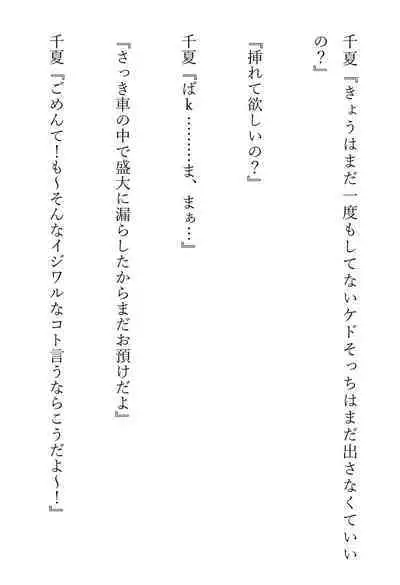 千夏『きょうはまだ一度もしてないケドそっちはまだ出さなくていい
の?』
『挿れて欲しいの?』
千夏『ばk………ま、まぁ…』
『さっき車の中で盛大に漏らしたからまだお預けだよ』
千夏『ごめんて!も～そんなイジワルなコト言うならこうだよ～!』